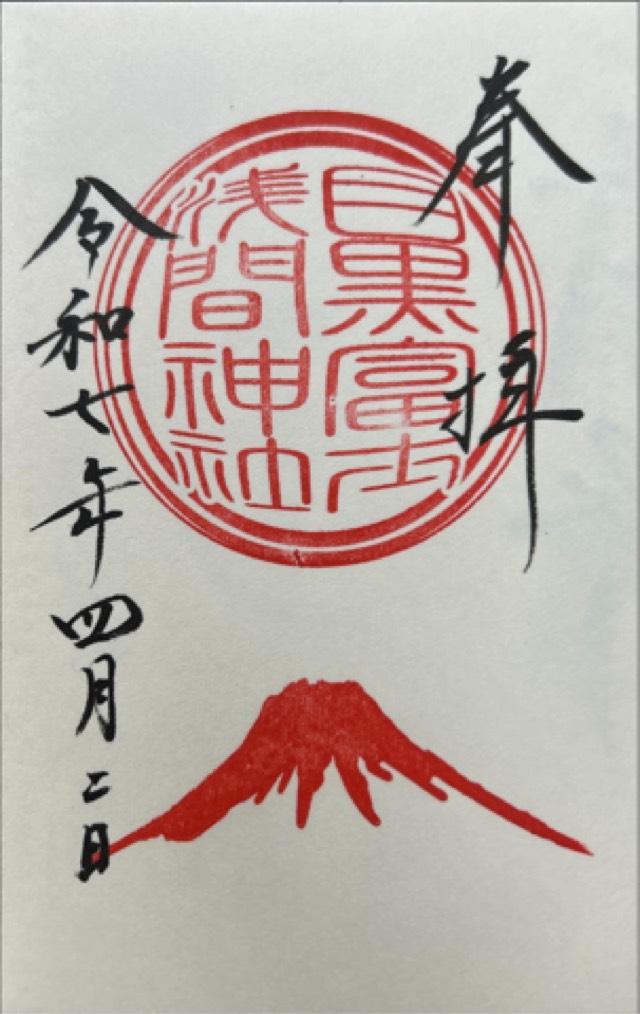 奉拝
目黒富士
浅間神社
令和七年四月二日